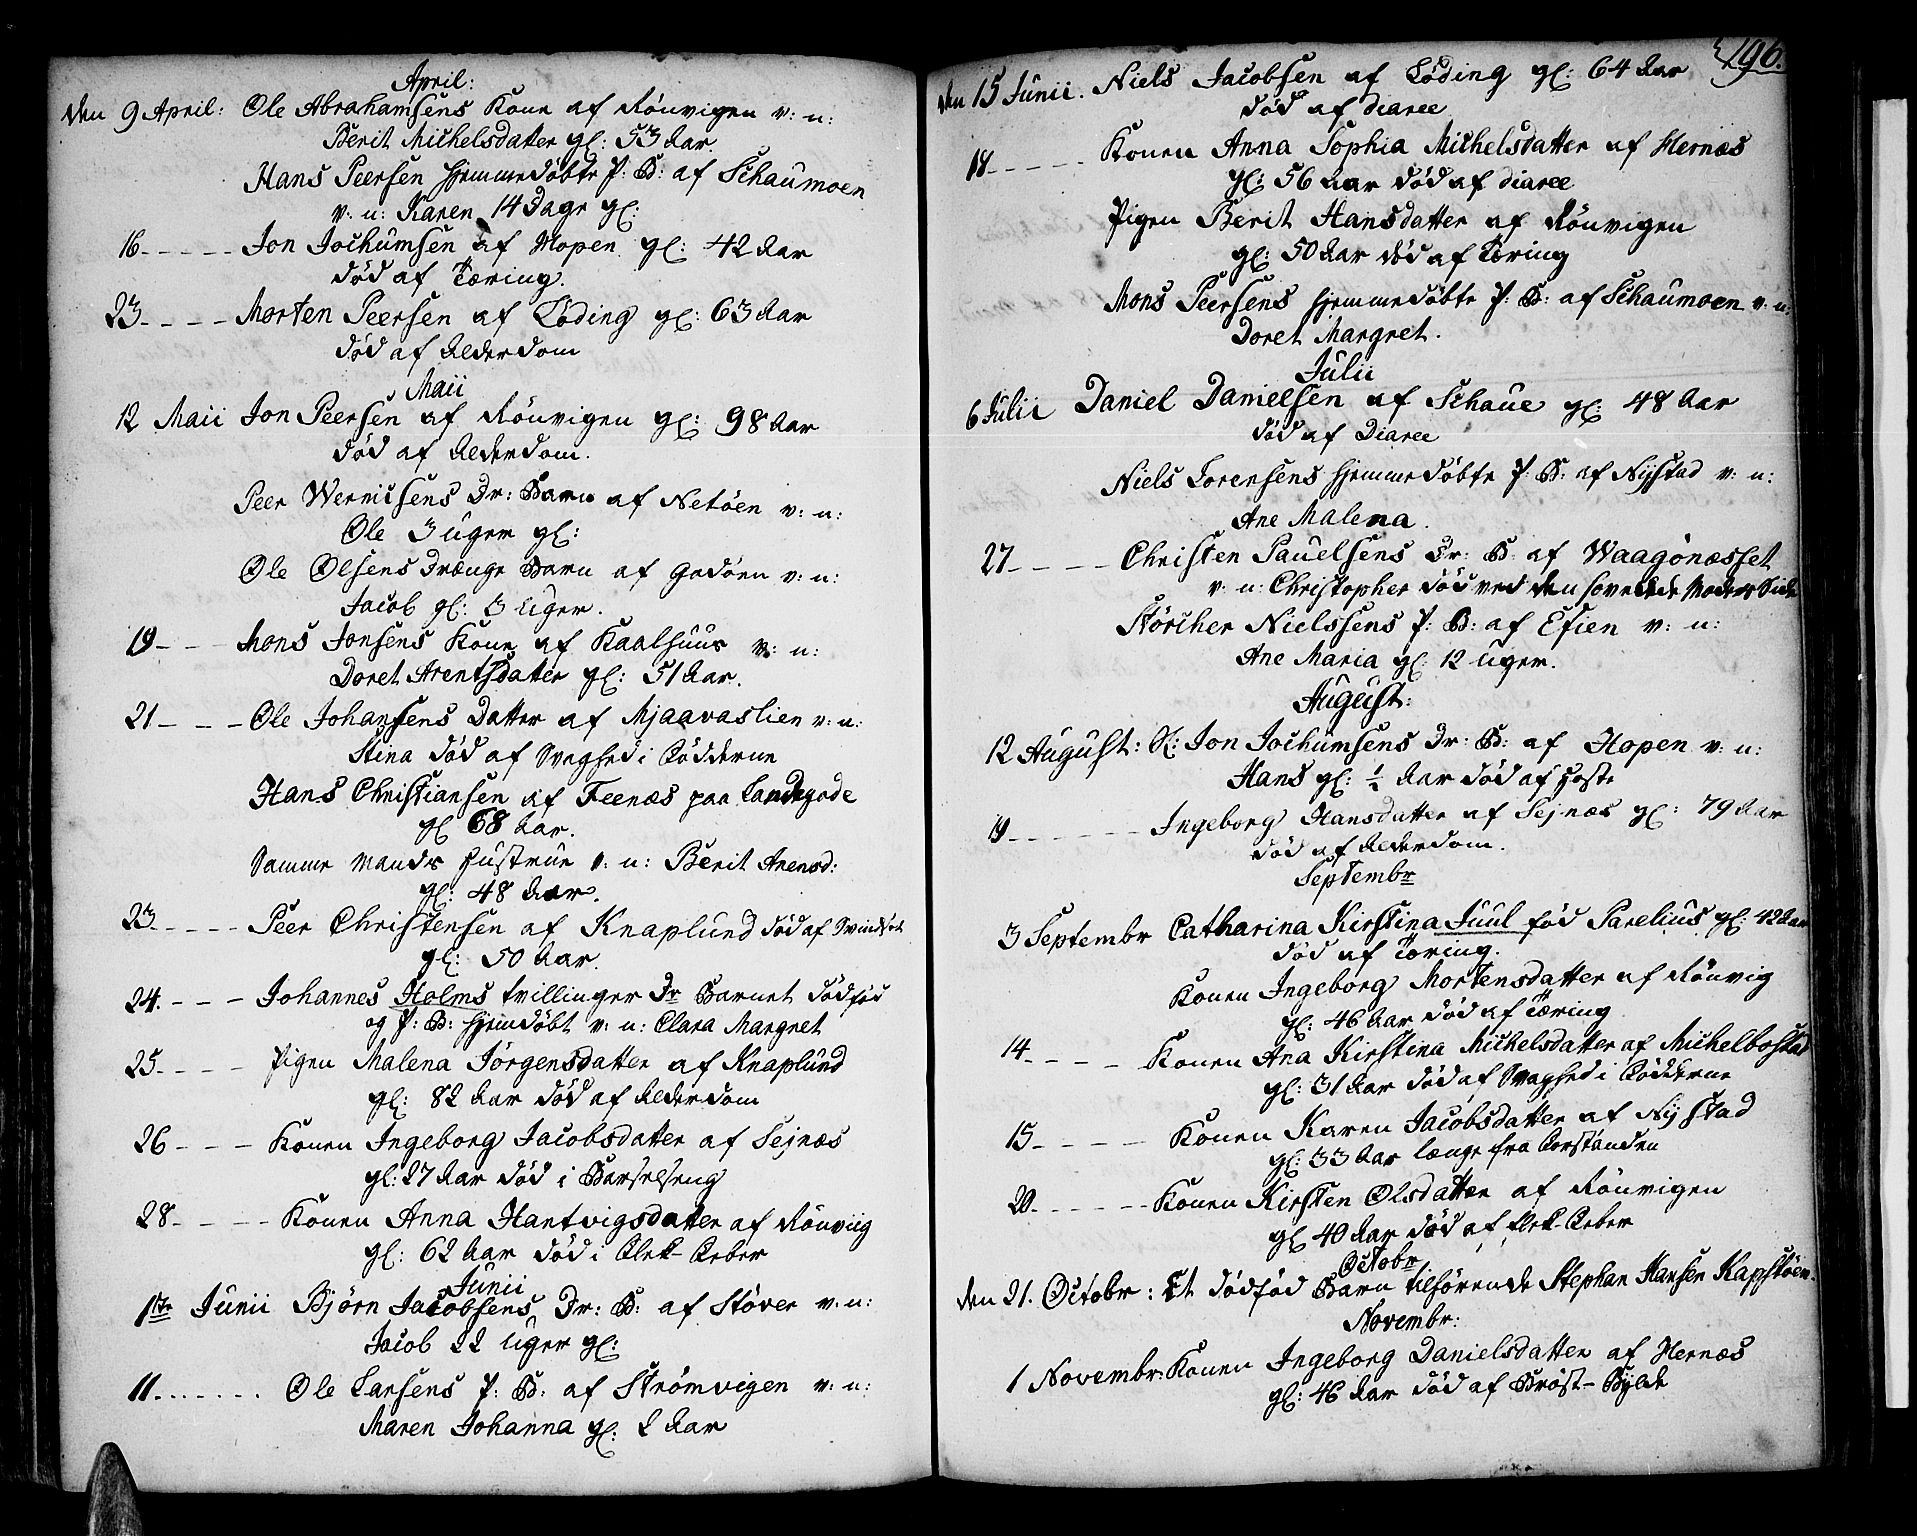 April:
den 9 April: Ole Abrahamsens Kone af Rönvigen v: n:
Berit Michelsdatter gl: 53 Aar.
Hans Peersen hjemmedöbte P: B: af Schaumoen
v: n: Karen 14 Dage gl:
16 - - - - - Jon Jochumsen af Hopen gl: 42 Aar
död af Tæring.
23 - - - - Morten Peersen af Löding gl: 63 Aar
död af Alderdom
Maii
12 Maii Jon Peersen af Rönvigen gl: 98 Aar
död af Alderdom.
Peer Wernissens Dr: Barn af Netöen v: n:
Ole 3 Uger gl:
Ole Olsens Drænge Barn af Godöen v: n:
Jacob gl: 3 Uger.
19 - - - Mons Jonsens Kone af Kaalhuus v: n:
Doret Arentsdatter gl: 51 Aar.
21 - - - - Ole Johansens Datter af Mjaavaslien v: n:
Stina död af Svaghed i Lödderne
Hans Christiansen af Feenæs paa Landegode
gl 68 Aar.
Samme Mands Hustrue v: n: Berit Arensd:
gl: 48 Aar.
23. - - - - - Peer Christensen af Knaplund död af Svindsot
gl: 50 Aar.
24. - - - Johannes Holms tvillinger Dr Barnet dödföd
og P: B: hjemdöbt v: n: Clara Margret
25 - - - - Pigen Malena Jörgensdatter af Knaplund
gl: 82 Aar död af Alderdom
26 - - - Konen Ingeborg Jacobsdatter af Sejnæs
gl: 27 Aar död i Barselseng
28 - - - - Konen Anna Hantvigsdatter af Rönviig
gl: 62 Aar död i Flek-Feber
Junii
1ste Junii Björn Jacobsens Dr: B: af Stöver v: n:
Jacob 22 Uger gl:
11. - - - - - Ole Larsens P: B: af Strömvigen v: n:
Maren Johanna gl: 2 Aar
196.
den 15 Junii. Niels Jacobsen af Löding gl: 64 Aar
död af diaree
18 - - - - Konen Anna Sophia Michelsdatter af Hernæs
gl: 56 Aar död af diaree
Pigen Berit Hansdatter af Rönvigen
gl: 50 Aar död af Tæring
Mons Peersens hjemmedöbte P: B: af Schaumoen v: n:
Doret Margret.
Julii
6 Julii Daniel Danielsen af Schaue gl: 48 Aar
död af Diaree
Niels Lorensens hjemmedöbte P: B: af Nijstad v: n:
Ane Malena.
27 - - - - Christen Pauelsens Dr: B: af Waagönæsset
v: n: Christopher död ved den sovende Moders Side
Störcher Nielssens P: B: af Efien v: n:
Ane Maria gl: 12 Uger.
August:
12 August: S: Jon Jochumsens Dr: B: af Hopen v: n:
Hans gl: ½ Aar död af Hoste
19 - - - - - - Ingeborg Hansdatter af Sejnæs gl: 79 Aar
död af Alderdom.
Septembr
3 Septembr Catharina Kirstina Juul föd Parelius gl: 42 Aar
död af Tæring.
Konen Ingeborg Mortensdatter af Rönvig
gl: 46 Aar död af Tæring
14 - - - - Konen Ana Kirstina Michelsdatter af Michelbostad
gl: 31 Aar död af Svaghed i Lödderne
15 - - - - - Konen Karen Jacobsdatter af Nijstad
gl: 33 Aar længe fra Forstanden
20 - - - - - - Konen Kirsten Olsdatter af Rönvigen
gl 40 Aar död af Flek-Feber
Octobr
den 21. Octobr: Et dödföd Barn tilhörende Stephan Hansen Kapstöen.
Novembr:
1 Novembr: Konen Ingeborg Danielsdatter af Hernæs
gl: 46 Aar död af Bröst-Bylde